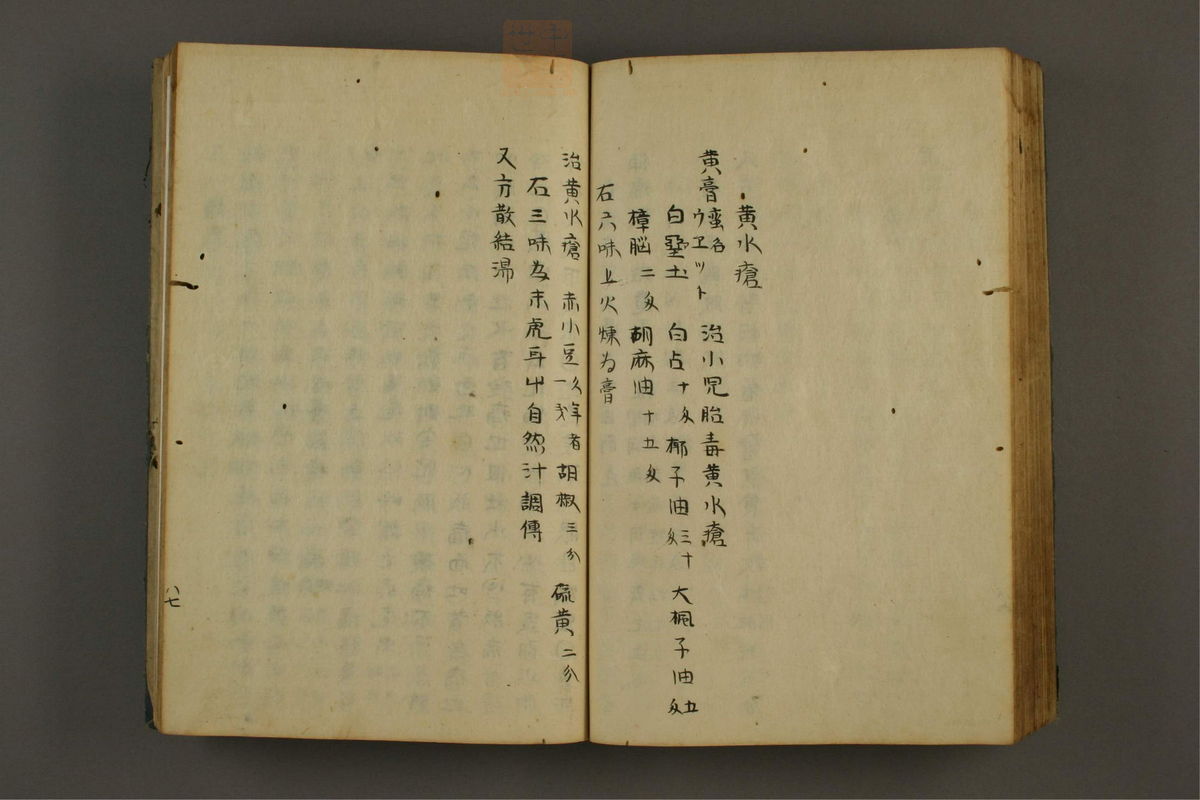 黄水瘡
黄膏 蛮名ウヱット 治小児胎毒黄水瘡
白堊土 白占十匁 椰子油三十匁 大楓子油五匁
樟脳二匁 胡麻油十五匁
右六味上火煉為膏
治黄水瘡 赤小豆 一久年者 胡椒三分 硫黄二分
右三味為末虎耳中自然汁調傳
又方散結湯
八七